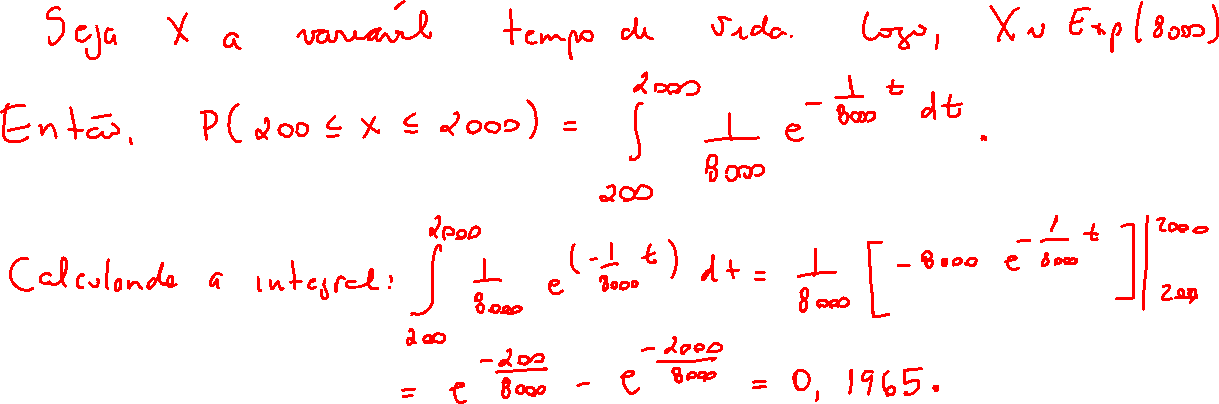 Seja X a variável tempo de vida. Logo, X ~ Exp(8000)
Então, P(200 ≤ X ≤ 2000) = ∫_{200}^{2000} \frac{1}{8000} e^{-\frac{1}{8000} t} dt.
Calculando a integral: ∫_{200}^{2000} \frac{1}{8000} e^{(-\frac{1}{8000} t)} dt = \frac{1}{8000} [-8000 e^{-\frac{1}{8000} t}]|_{200}^{2000}
= e^{\frac{-200}{8000}} - e^{\frac{-2000}{8000}} = 0,1965.